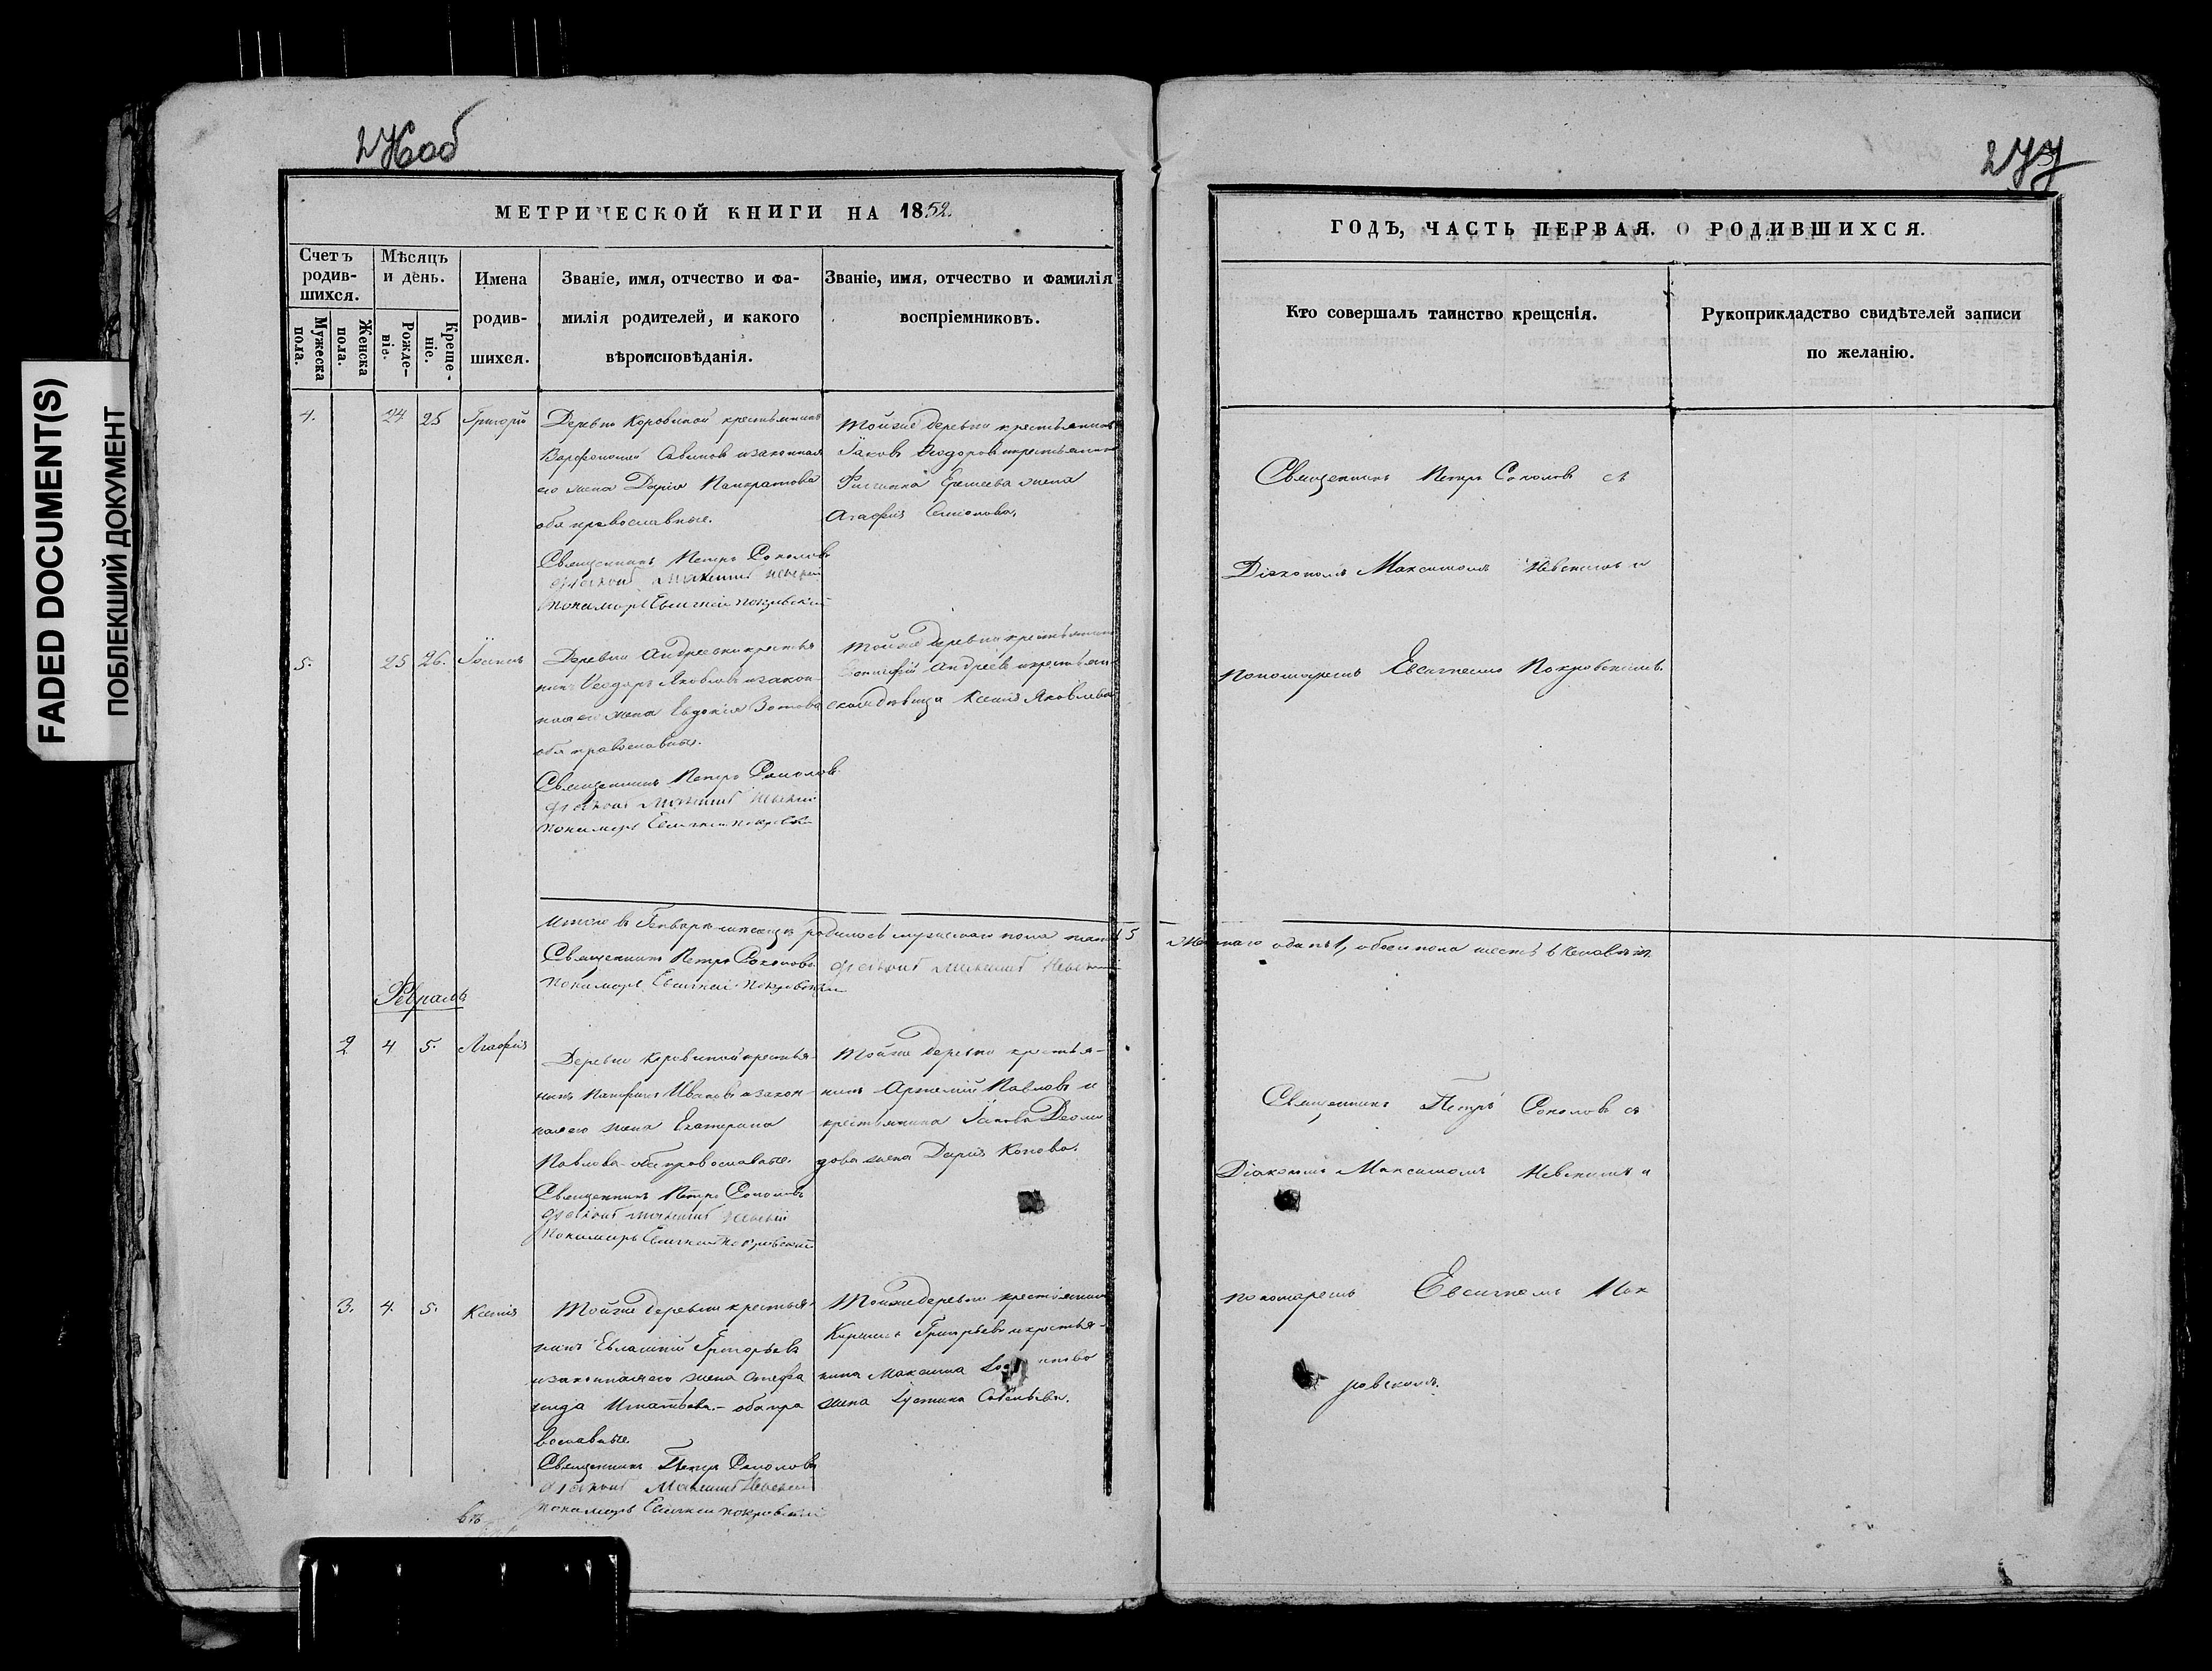 276 об
277
FADED DOCUMENT(S)
ПОБЛЕКШИЙ ДОКУМЕНТ
МЕТРИЧЕСКОЙ КНИГИ НА 1852.
Счетъ родив-шихся.
Мужеска пола.
Женска пола.
Мѣсяцъ и день.
Рожде-нія.
Креще-ніе.
Имена родив-шихся.
Званіе, имя, отчество и фа-
милія родителей, и какого
вѣроисповѣданія.
Званіе, имя, отчество и фамилія
воспріемниковъ.
4. 24 25 Григорій
Деревни Коровиной крестьянинъ
Варфоломей Савиновъ и законная
его жена Дарія Панкратова
оба православные.
Священникъ Петръ Соколовъ
Діаконъ Максимъ Невскій
Пономарь Евсигней Покровскій
Тойже деревни крестьянинъ
Іаковъ Ѳеодоровъ и крестьянина
Филиппа Ермеева жена
Агафія
5. 25 26. Іоаннъ
Деревни Андреевки крестья
нинъ Ѳеодоръ Яковлевъ и закон-
ная его жена Евдокія Зотова
оба православные.
Священникъ Петръ Соколовъ
Діаконъ Максимъ Невскій
Пономарь Евсигней Покровскій
Тойже деревни крестьянинъ
Андреевъ и крестьян
ская дѣвица Ксенія Яковлева
Итого въ Генварѣ мѣсяцѣ родилось мужескаго пола пять 5
Священникъ Петръ Соколовъ Діаконъ Максимъ Невскій
Пономарь Евсигней Покровскій
Февраль
2 4 5. Агафія
Деревни Коровиной крестья-
нинъ Иванов и закон-
ная его жена Екатерина
Павлова оба православные.
Священникъ Петръ Соколовъ
Діаконъ Максимъ Невскій
Пономарь Евсигней Покровскій
Тойже деревни крестья-
нинъ Артемій Павловъ и
крестьянина Іакова
дова жена Дарія Конова.
3. 4. 5. Ксенія
Тойже деревни крестья-
нинъ Евлампій Григорьевъ
и законная его жена Степа
нида Игнатьева.- оба пра
вославные
Священникъ Петръ Соколовъ
Діаконъ Максимъ Невскій
Пономарь Евсигней Покровскій
Тойже деревни крестьянинъ
Григорьевъ и крестья-
нина Максима
жена Іустина Савельева.
въ
ГОДЪ, ЧАСТЬ ПЕРВАЯ. О РОДИВШИХСЯ.
Кто совершалъ таинство крещенія.
Рукоприкладство свидѣтелей записи
по желанію.
Священникъ Петръ Соколовъ съ
Діакономъ Максимомъ Невскимъ и
пономаремъ Евсигнеемъ Покровскимъ.
и Женскаго одна 1, обоего пола шесть 6 человѣкъ
Священникъ Петръ Соколовъ съ
Діакономъ Максимомъ Невскимъ и
пономаремъ Евсигнемъ Пок
ровскимъ.